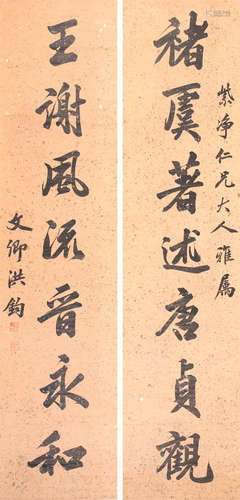 紫净仁兄大人雅属
褚虞著述唐贞觀
王谢風流晋永和
文卿洪鈞